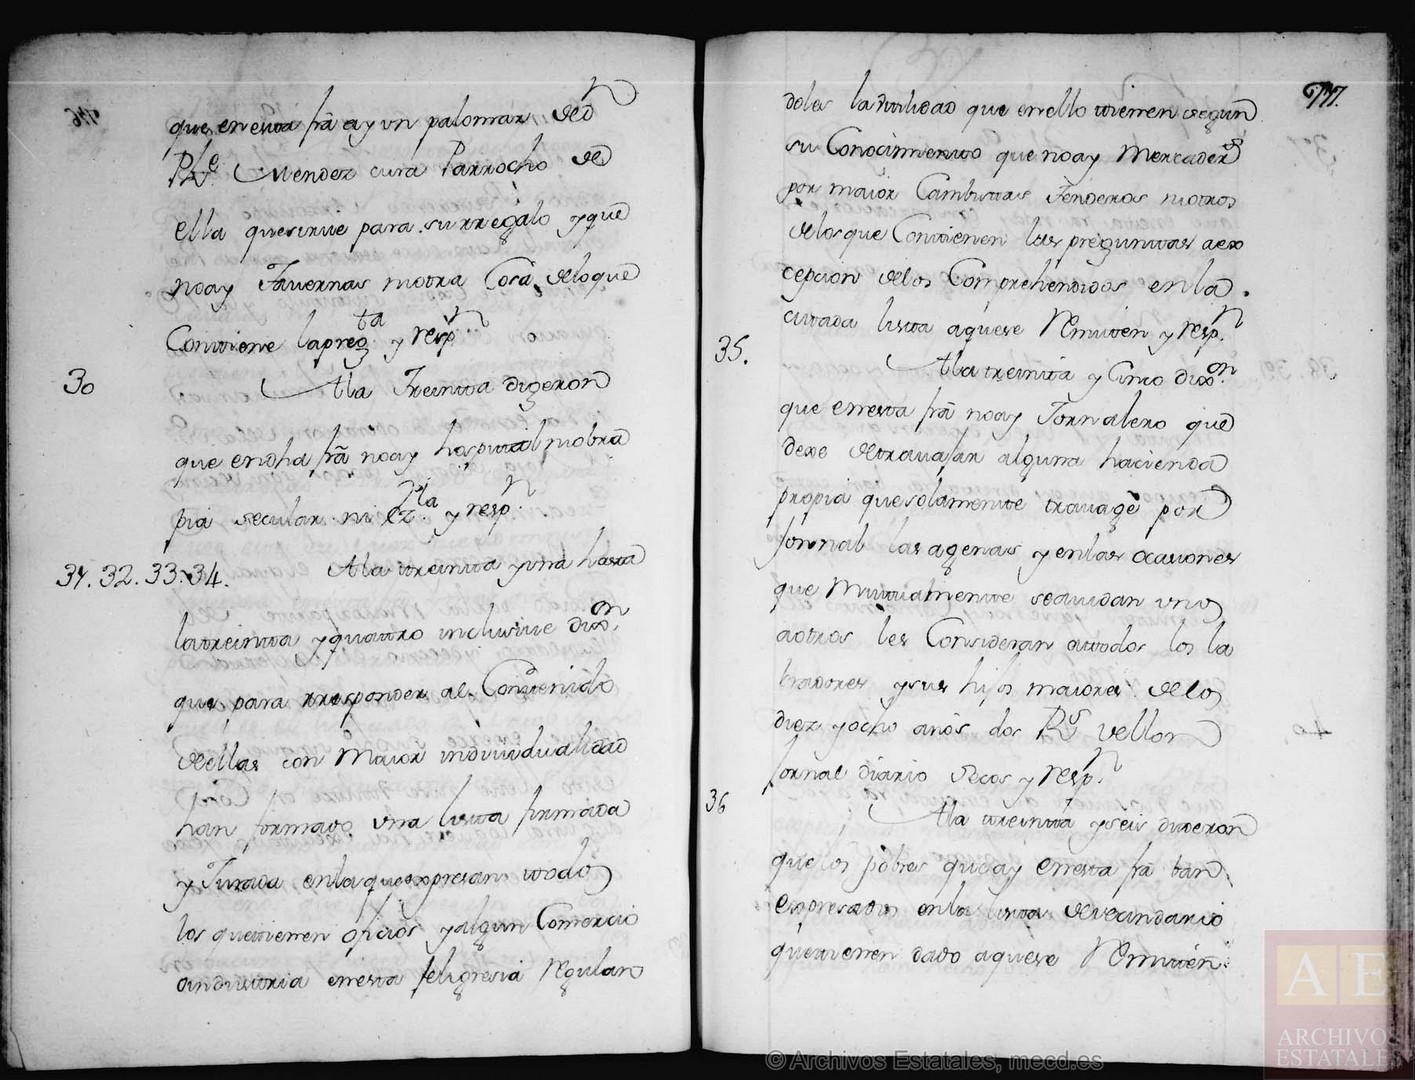 que en esta frã ay un palomar de Dn
Ph.e Mendez cura Parrocho de
ella que sirve para su rregalo y que
no ay Tavernas ni otra Cosa de lo que
Contiene la preg.ta y resp.n
30 A la Treinta digeron
que en dha frã no ay hospital ni obra
pia secular ni Ez.la y resp.n
31. 32. 33. 34. A la treinta y una hasta
la treinta y quattro inclusive dix.on
que para rresponder al Contenido
de ellas con Maior individualidad
han formado una lista firmada
y Jurada en la que expresan todos
los que tienen oficios y algun Comercio
o industria en esta feligresia regulan
177.
doles la utilidad que en ello tienen segun
su Conocimiento que no ay Mercaders
por maior Cambistas Tenderos ni otros
de los que Contienen las preguntas a ex
cepcion de los Comprehendidos en la
citada lista a que se Remiten y resp.n
35. A la treinta y Cinco dix.on
que en esta frã no ay Jornalero que
dexe de travajar alguna hacienda
propia que solamente travage por
Jornal las agenas y en las ocasiones
que Mutuamente se aiudan unos
a otros les Consideran a todos los la
bradores y sus hijos maiores de los
diez y ocho años dos R.s vellon
Jornal diario secos y resp.n
36 A la treinta y seis dixeron
que los pobres que ay en esta frã ban
expresados en la lista de vecindario
que tienen dado a que se Remiten.
© Archivos Estatales, mecd.es
AE
ARCHIVOS
ESTATALES